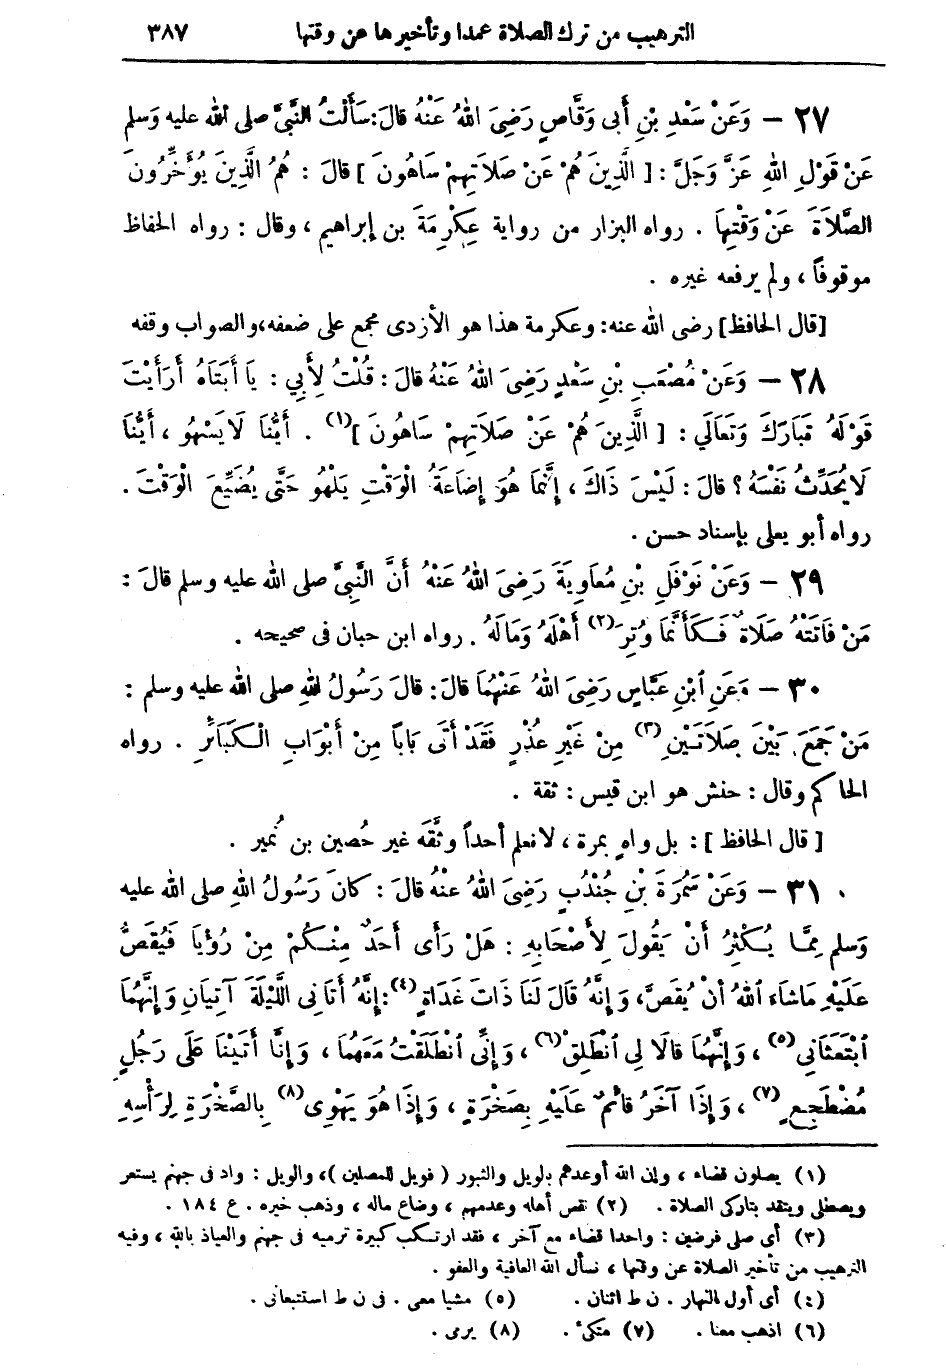 الترهيب من ترك الصلاة عمدا وتأخيرها عن وقتها ٣٨٧
٢٧ — وَعَنْ سَعْدِ بْنِ أَبِى وَقَّاصٍ رَضِىَ اللهُ عَنْهُ قالَ: سَأَلْتُ النَّبِىَّ صلى الله عليه وَسلم
عَنْ قَوْلِ اللهِ عَزَّ وَجَلَّ : [ الَّذِينَ هُمْ عَنْ صَلاَتِهِمْ سَاهُونَ ] قالَ : هُمُ الَّذِينَ يُؤَخِّرُونَ
الصَّلاَةَ عَنْ وَقْتِهَا . رواه البزار من رواية عِكْرِمَةَ بن إبراهيم ، وقال : رواه الحفاظ
موقوفاً ، ولم يرفعه غيره .
[قال الحافظ] رضى الله عنه: وعكرمة هذا هو الأزدى مجمع على ضعفه، والصواب وقفه
٢٨ — وَعَنْ مُصْعَبِ بْنِ سَعْدٍ رَضِىَ اللهُ عَنْهُ قالَ : قُلْتُ لِأَبِي : يَا أَبَتَاهُ أَرَأَيْتَ
قَوْلَهُ تَبَارَكَ وَتَعَالَي : [ الَّذِينَ هُمْ عَنْ صَلاَتِهِمْ سَاهُونَ ](١) . أَيُّنَا لاَ يَسْهُو ، أَيُّنَا
لاَ يُحَدِّثُ نَفْسَهُ ؟ قالَ : لَيْسَ ذَاكَ ، إِنَّمَا هُوَ إِضَاعَةُ الْوَقْتِ يَلْهُو حَتَّى يُضَيِّعَ الْوَقْتَ .
رواه أبو يعلى بإسناد حسن .
٢٩ — وَعَنْ نَوْفَلِ بْنِ مُعَاوِيَةَ رَضِىَ اللهُ عَنْهُ أَنَّ النَّبِىَّ صلى الله عليه وسلم قالَ :
مَنْ فَاتَتْهُ صَلاَةٌ فَكَأَنَّمَا وُتِرَ(٢) أَهْلَهُ وَمَالَهُ . رواه ابن حبان فى صحيحه .
٣٠ — وَعَنِ ابْنِ عَبَّاسٍ رَضِىَ اللهُ عَنْهُمَا قالَ : قالَ رَسُولُ اللهِ صلى الله عليه وسلم :
مَنْ جَمَعَ بَيْنَ صَلاَتَيْنِ(٣) مِنْ غَيْرِ عُذْرٍ فَقَدْ أَتَى بَاباً مِنْ أَبْوَابِ الْكَبَائِرِ . رواه
الحاكم وقال : حنش هو ابن قيس : ثقة .
[ قال الحافظ ] : بل واهٍ بمرة ، لا نعلم أحداً وثَّقَه غير حُصين بن نُمير .
٣١ — وَعَنْ سَمُرَةَ بْنِ جُنْدُبٍ رَضِىَ اللهُ عَنْهُ قالَ : كانَ رَسُولُ اللهِ صلى الله عليه
وَسلم مِمَّا يُكْثِرُ أَنْ يَقُولَ لِأَصْحَابِهِ : هَلْ رَأَى أَحَدٌ مِنْكُمْ مِنْ رُؤْيَا فَيُقَصُّ
عَلَيْهِ مَاشَاءَ اللهُ أَنْ يُقَصَّ، وَإِنَّهُ قَالَ لَنَا ذَاتَ غَدَاةٍ(٤): إِنَّهُ أَتَانِى اللَّيْلَةَ آتِيَانِ وَإِنَّهُمَا
ابْتَعَثَانِى(٥) ، وَإِنَّهُمَا قَالاَ لِى انْطَلِقْ(٦) ، وَإِنِّى انْطَلَقْتُ مَعَهُمَا ، وَإِنَّا أَتَيْنَا عَلَى رَجُلٍ
مُضْطَجِعٍ(٧) ، وَإِذَا آخَرُ قائِمٌ عَلَيْهِ بِصَخْرَةٍ ، وَإِذَا هُوَ يَهْوِى(٨) بِالصَّخْرَةِ لِرَأْسِهِ
(١) يصلون قضاء ، وإن الله أوعدهم بالويل والثبور ( فويل للمصلين )، والويل : واد فى جهنم يستعر
ويصطلى ويتقد بتاركى الصلاة . (٢) نقص أهله وعدمهم ، وضاع ماله ، وذهب خيره . ع ١٨٤ .
(٣) أى صلى فرضين : واحدا قضاء مع آخر ، فقد ارتكب كبيرة ترميه فى جهنم والعياذ بالله ، وفيه
الترهيب من تأخير الصلاة عن وقتها ، نسأل الله العافية والعفو .
(٤) أى أول النهار . ن ط اثنان . (٥) مشيا معى . فى ن ط استتبعانى .
(٦) اذهب معنا . (٧) متكئ . (٨) يرمى .